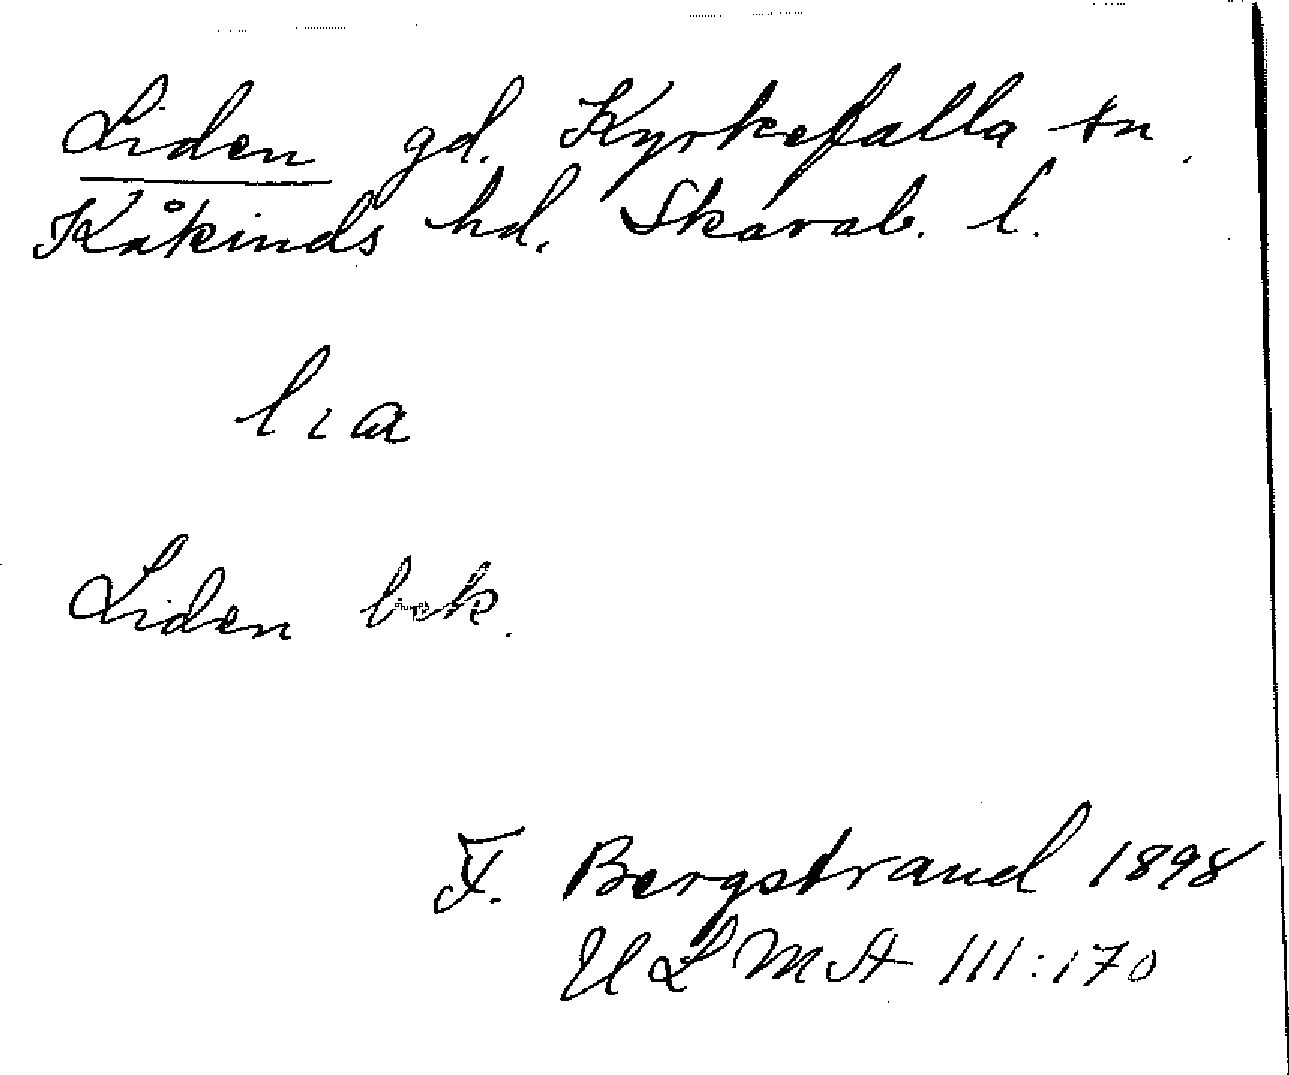 Liden gd. Kyrkefalla sn.
Kåkinds hd. Skarab. l.
lıa
Liden bek.
F. Bergstrand 1898
ULMA 111:170